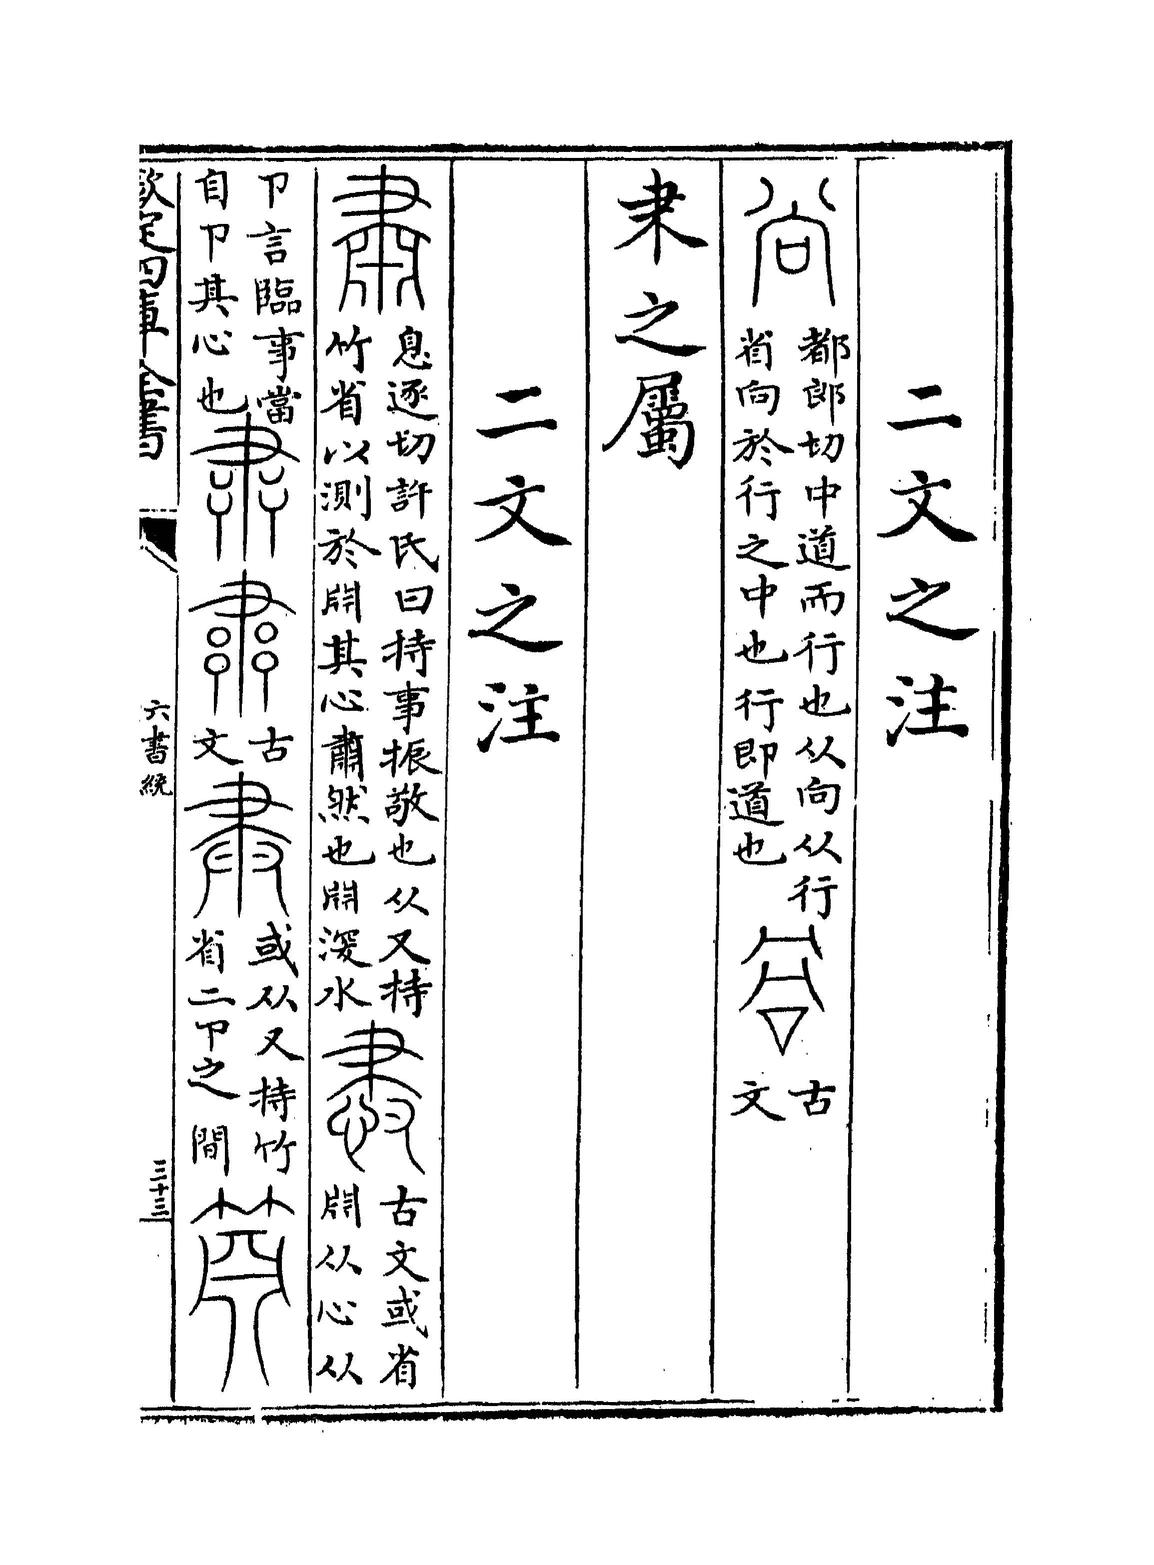 二文之注
都郎切中道而行也从向从行
省向於行之中也行即道也
古
文
之屬
二文之注
息逐切許氏曰持事振敬也从又持
竹省以測於𣶒其心肅然也𣶒深水
古文或省
𣶒从心从
卩言臨事當
自卩其心也
古
文
或从又持竹
省二卩之間
欽定四庫全書
六書統
三十三